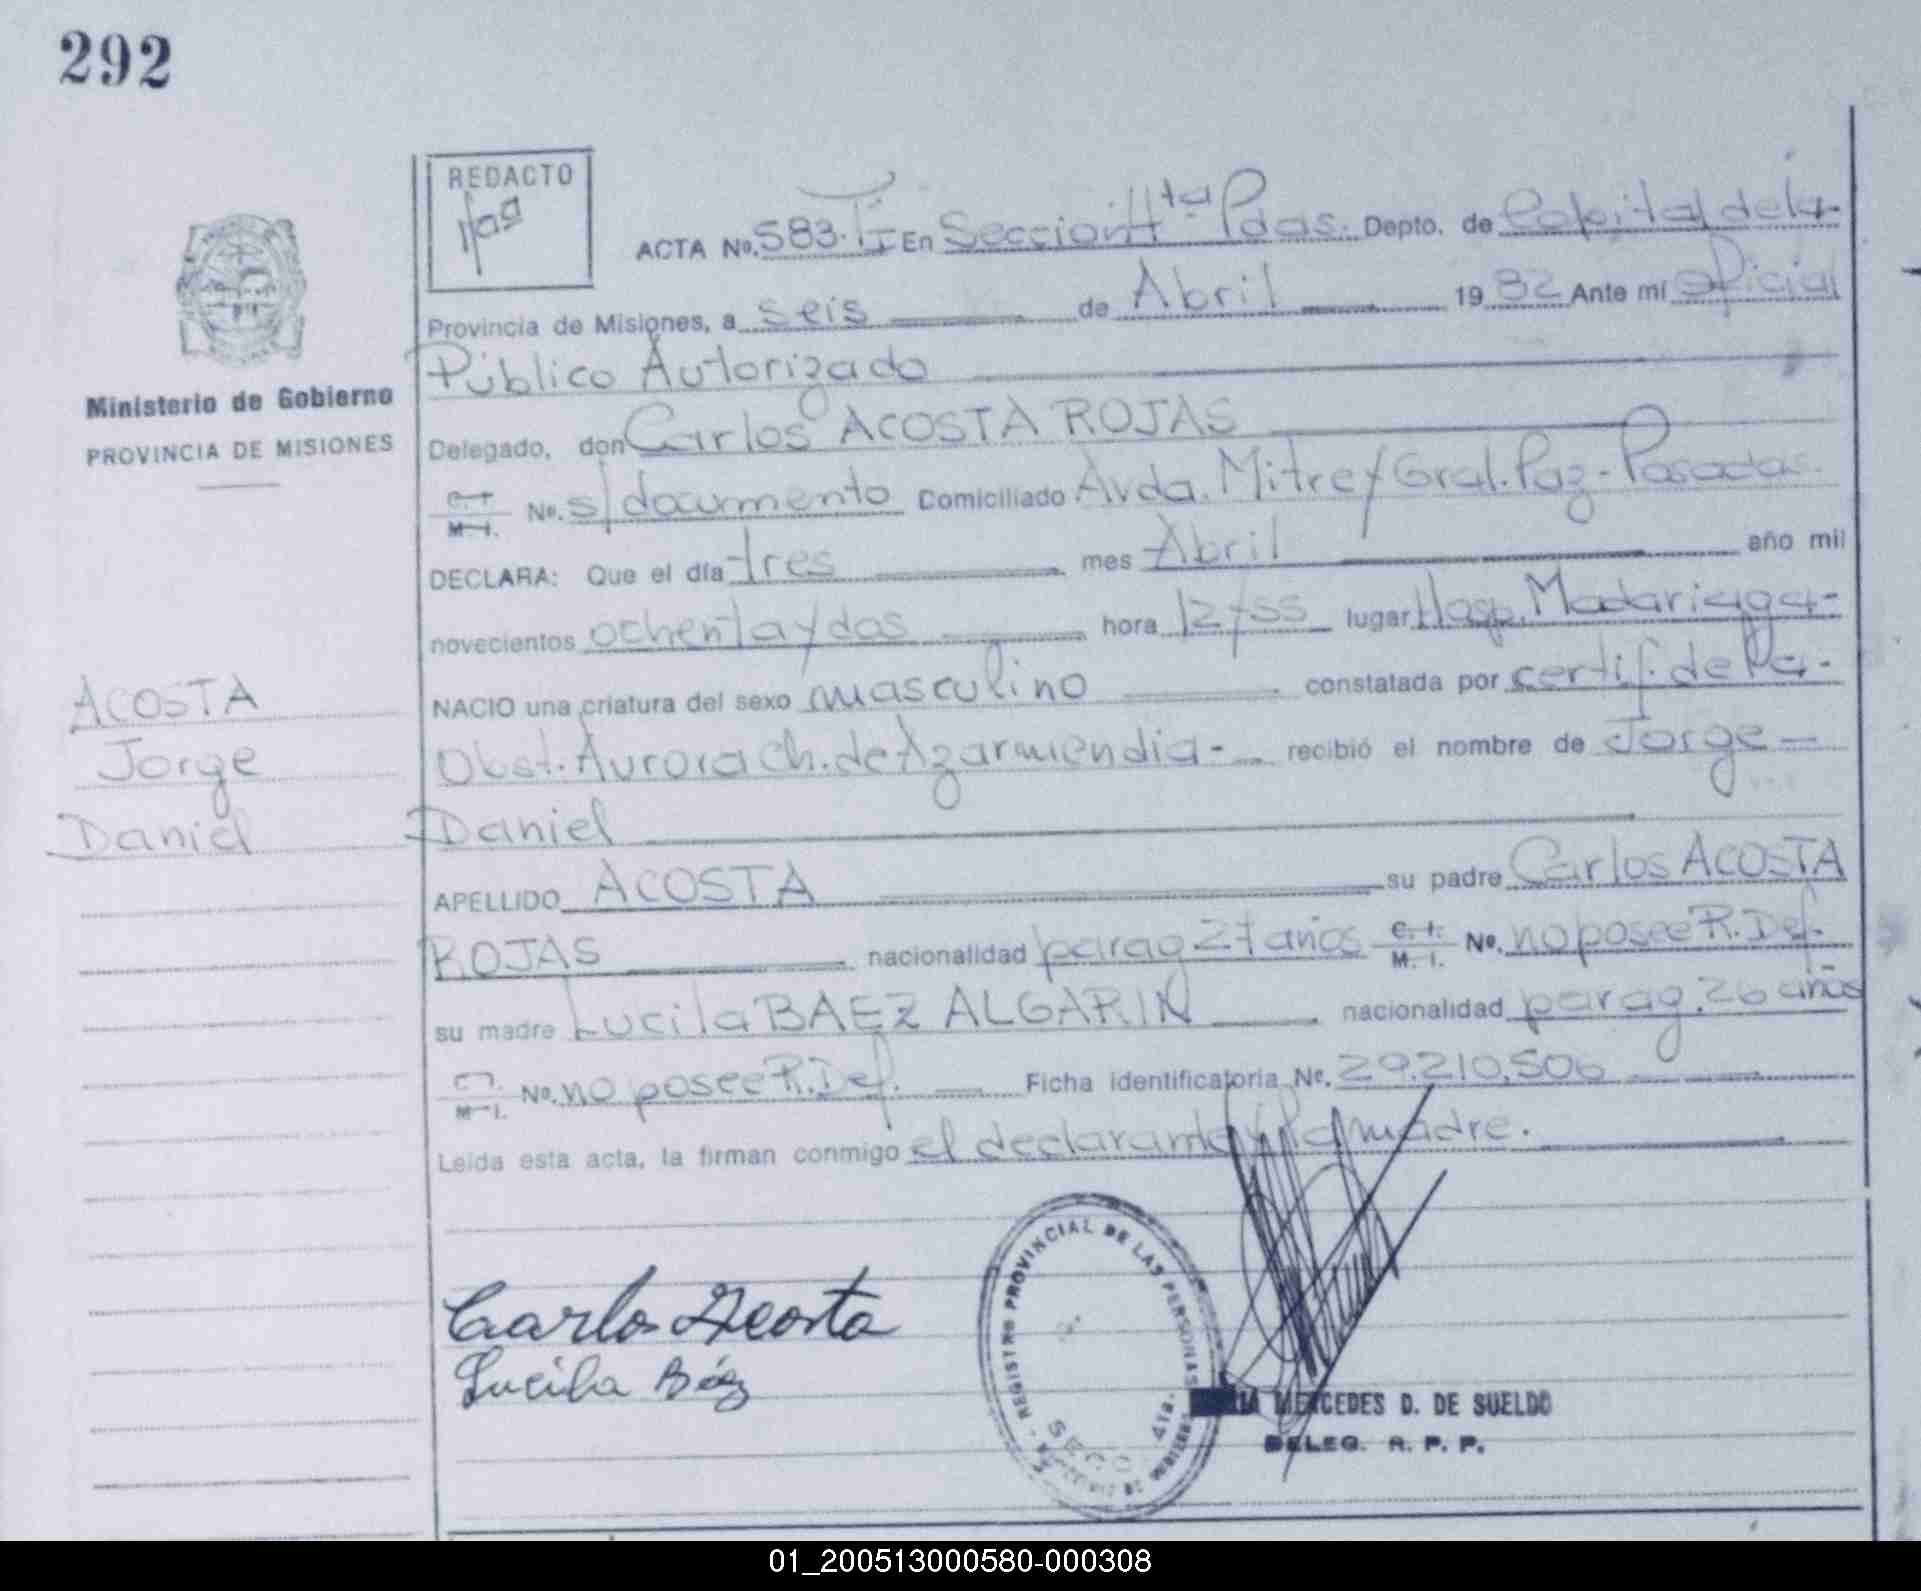 292
REDACTO
ACTA No. 583. TI En Sección 4ta Pdas. Depto. de Capital de la
Provincia de Misiones, a seis de Abril 1982 Ante mí oficial
Público Autorizado
Ministerio de Gobierno
PROVINCIA DE MISIONES
Delegado, don Carlos ACOSTA ROJAS
C. I. M. I. No. s/documento Domiciliado Avda. Mitre y Gral. Paz - Posadas.
DECLARA: Que el día tres mes Abril año mil
novecientos ochenta y dos hora 12/55 lugar Hosp. Madariaga-
NACIO una criatura del sexo masculino constatada por certif. de la-
Obst. Aurora Ch. de Azarmendia- recibió el nombre de Jorge
Daniel
ACOSTA
Jorge
Daniel
APELLIDO ACOSTA su padre Carlos ACOSTA
ROJAS nacionalidad parag 27 años C. I. M. I. No. no posee R. Def.
su madre Lucila BAEZ ALGARIN nacionalidad parag. 26 años
C. I. M. I. No. no posee R. Def. Ficha identificatoria No. 29.210.506
Leída esta acta, la firman conmigo el declarante y la madre.
Carlos Acosta
Lucila Báez
REGISTRO PROVINCIAL DE LAS PERSONAS
SECC. 4ta.
MERCEDES D. DE SUELDO
DELEG. R. P. P.
01_200513000580-000308